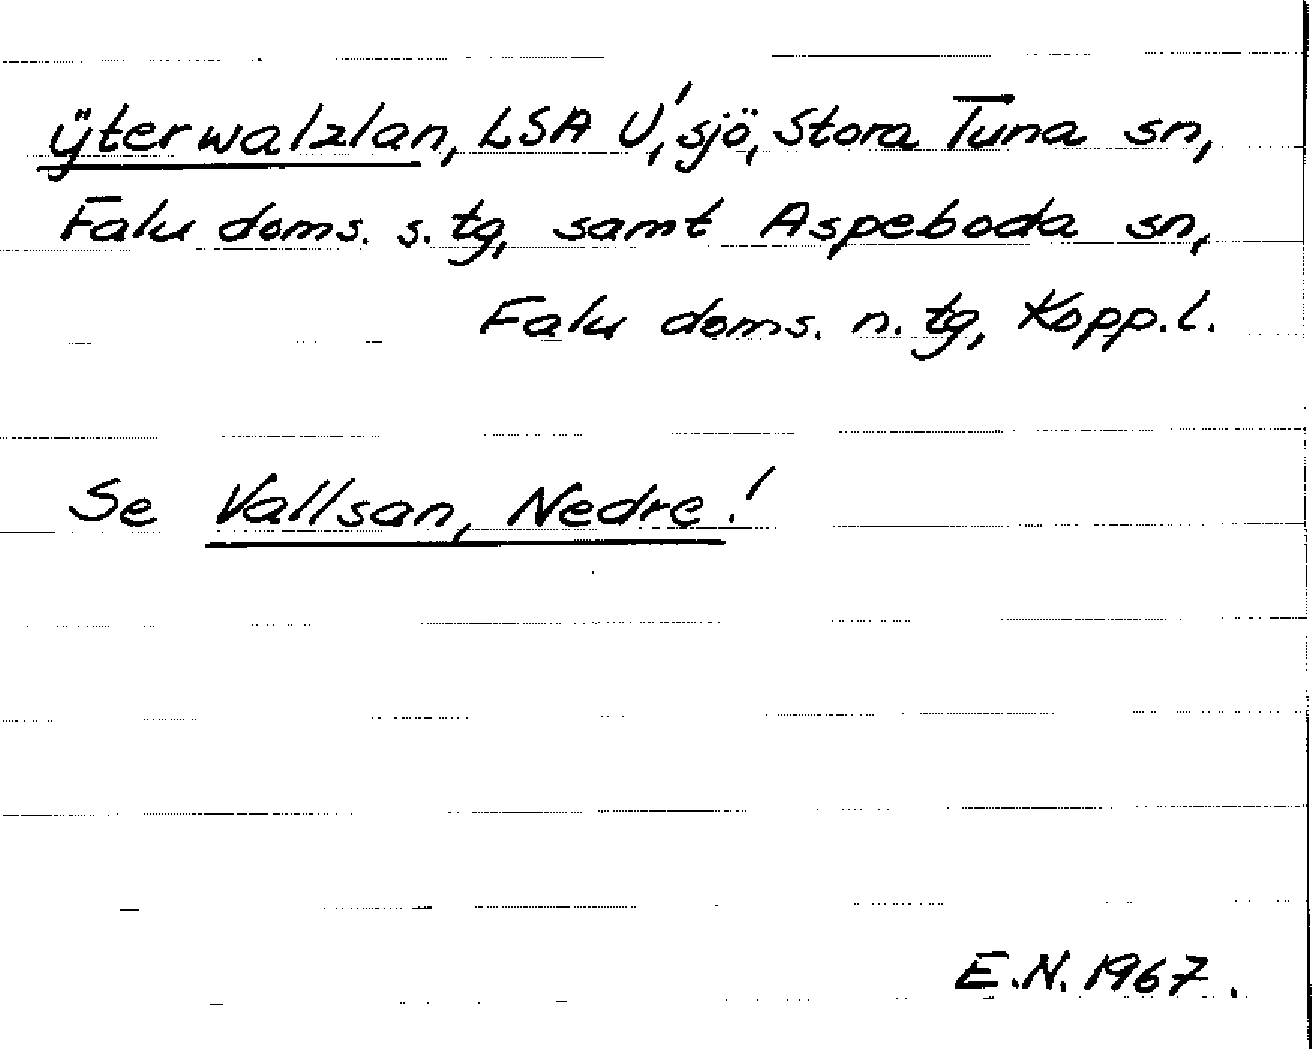 ÿterwalzlan, LSA U', sjö, Stora Tuna sn,
Falu doms. s. tg, samt Aspeboda sn,
Falu doms. n. tg, Kopp. l.
Se Vallsan, Nedre!
E.N. 1967.